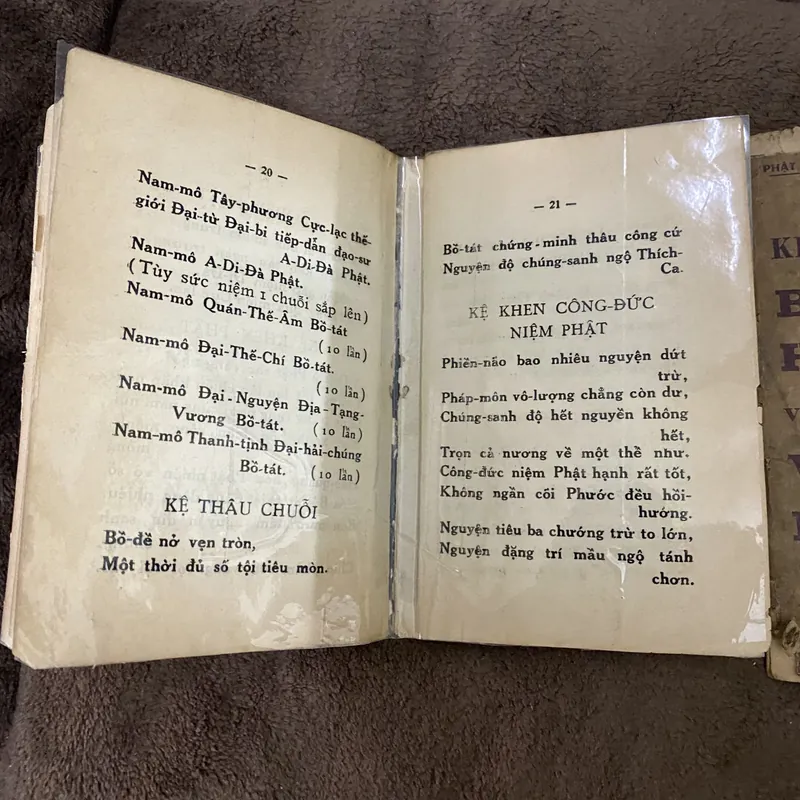 — 20 —
Nam-mô Tây-phương Cực-lạc thế-
giới Đại-từ Đại-bi tiếp-dẫn đạo-sư
A-Di-Đà Phật.
Nam-mô A-Di-Đà Phật.
(Tùy sức niệm 1 chuỗi sắp lên)
Nam-mô Quán-Thế-Âm Bồ-tát
(10 lần)
Nam-mô Đại-Thế-Chí Bồ-tát.
(10 lần)
Nam-mô Đại-Nguyện Địa-Tạng-
Vương Bồ-tát. (10 lần)
Nam-mô Thanh-tịnh Đại-hải-chúng
Bồ-tát. (10 lần)
KỆ THÂU CHUỖI
Bồ-đề nở vẹn tròn,
Một thời đủ số tội tiêu mòn.
— 21 —
Bồ-tát chứng-minh thâu công cứ
Nguyện độ chúng-sanh ngộ Thích-
Ca.
KỆ KHEN CÔNG-ĐỨC
NIỆM PHẬT
Phiền-não bao nhiêu nguyện dứt
trừ,
Pháp-môn vô-lượng chẳng còn dư,
Chúng-sanh độ hết nguyền không
hết,
Trọn cả nương về một thề như.
Công-đức niệm Phật hạnh rất tốt,
Không ngần cõi Phước đều hồi-
hướng.
Nguyện tiêu ba chướng trừ to lớn,
Nguyện đặng trí mầu ngộ tánh
chơn.
PHẬT